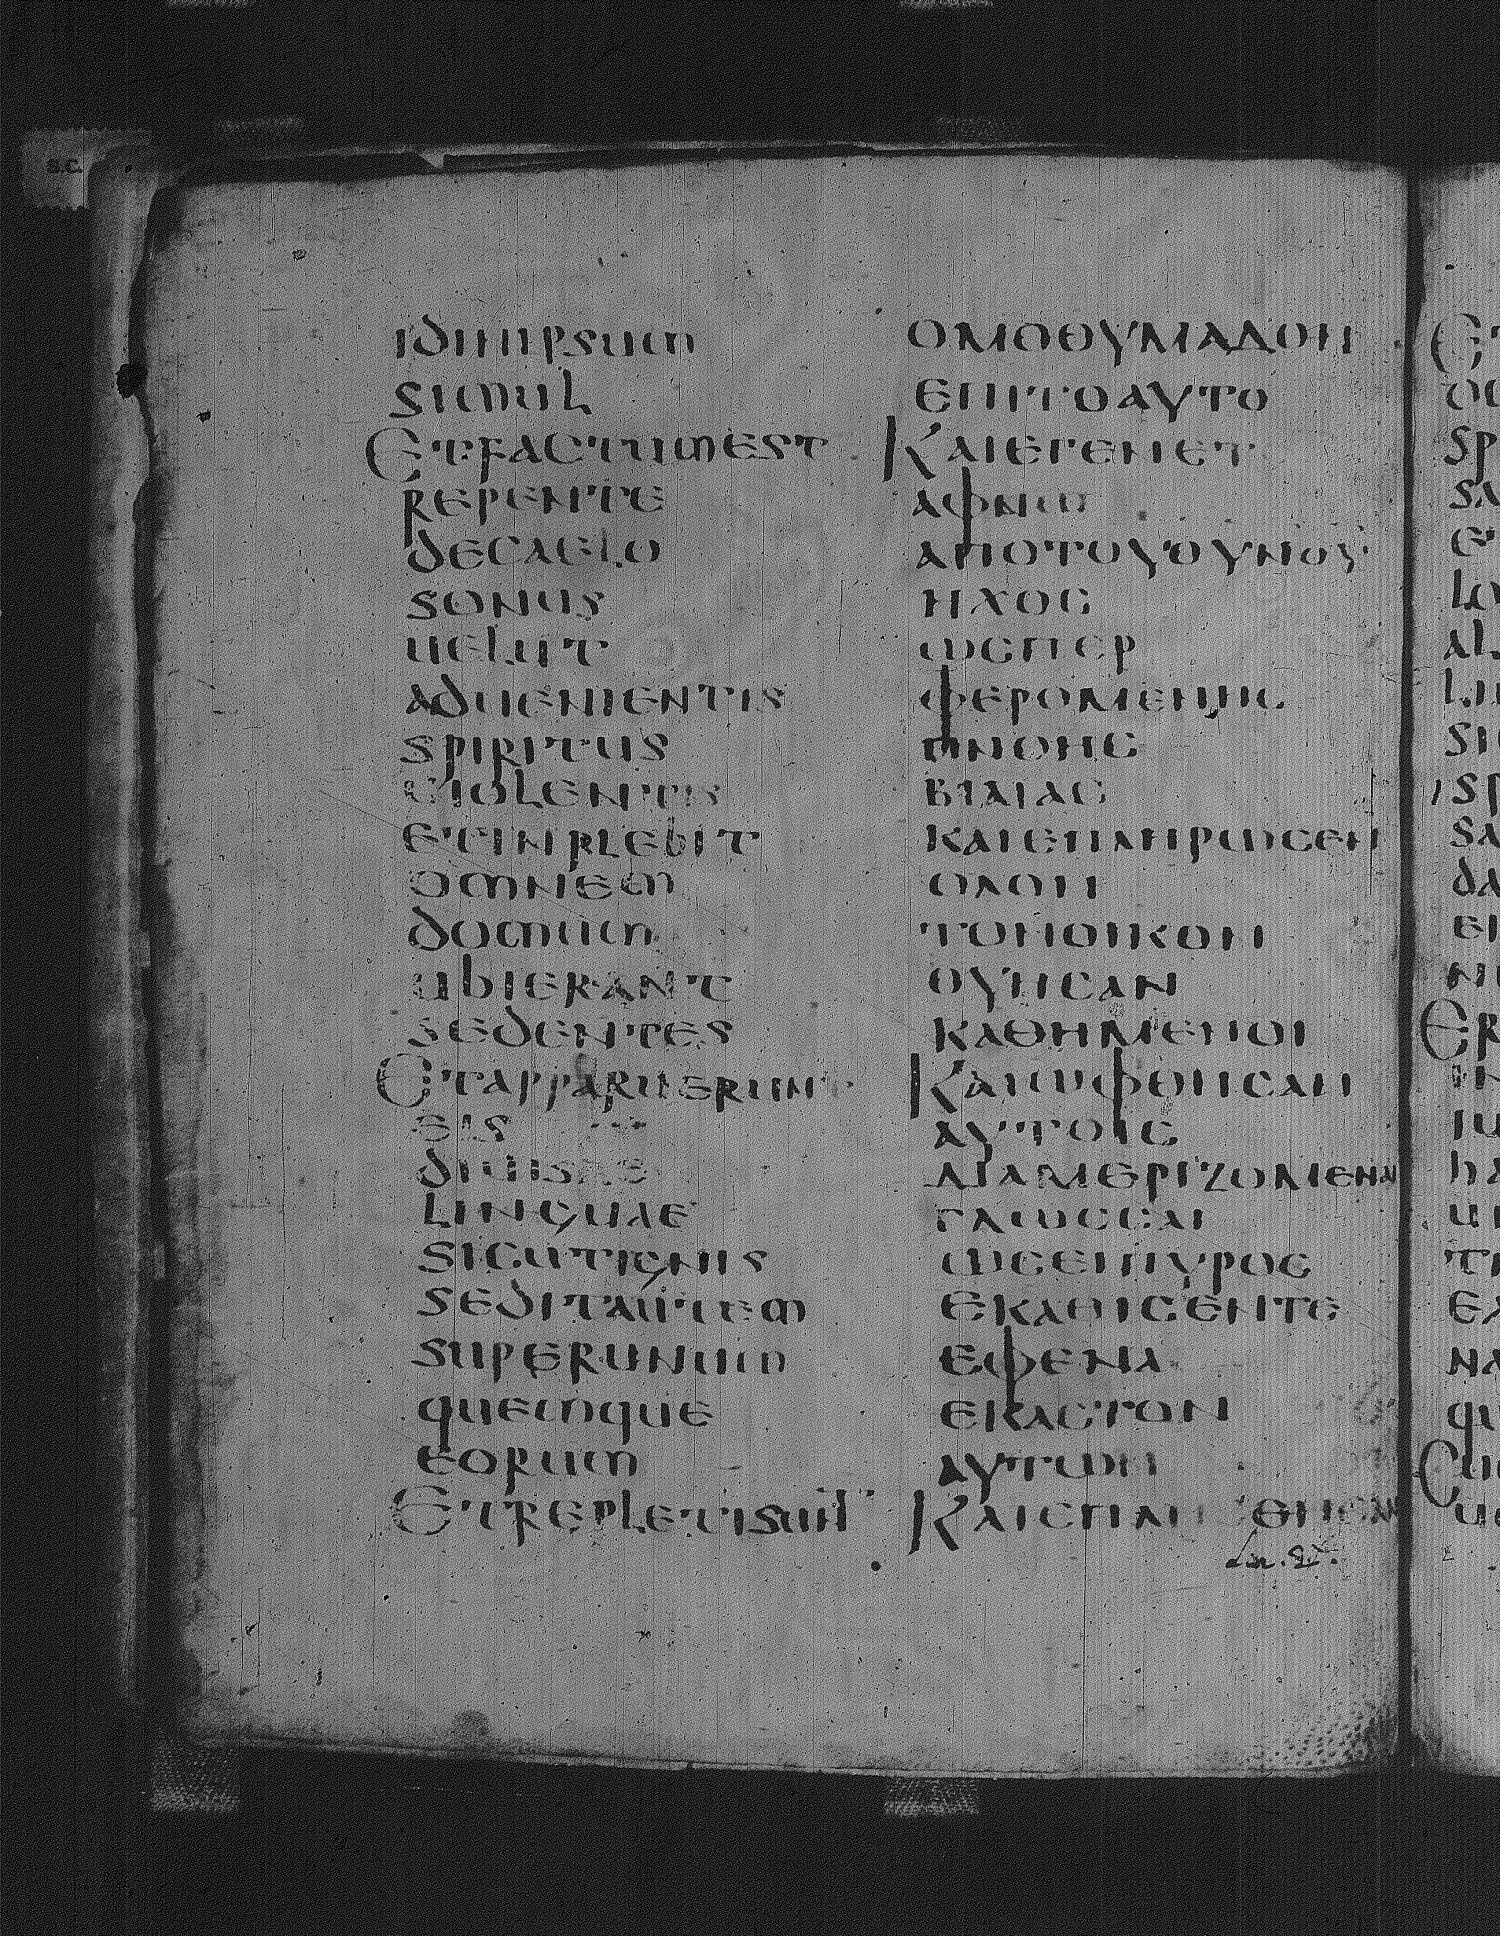 idinipsum
simul
Etfactumest
repente
decaelo
sonus
uelut
aduenientis
spiritus
uiolentis
etinplebit
omnem
domum
ubierant
sedentes
Etapparuerunt
eis
diuisae
linguae
sicutignis
seditautem
superunum
quemque
eorum
Etrepletisunt
ΟΜΟΘΥΜΑΔΟΝ
ΕΠΙΤΟΑΥΤΟ
ΚΑΙΕΓΕΝΕΤ
ΑΦΝΩ
ΑΠΟΤΟΥΟΥΝΟΥ
ΗΧΟС
ΩСΠΕΡ
ΦΕΡΟΜΕΝΗС
ΠΝΟΗС
ΒΙΑΙΑС
ΚΑΙΕΠΛΗΡΩСΕΝ
ΟΛΟΝ
ΤΟΝΟΙΚΟΝ
ΟΥΗСΑΝ
ΚΑΘΗΜΕΝΟΙ
ΚΑΙΩΦΘΗСΑΝ
ΑΥΤΟΙС
ΔΙΑΜΕΡΙΖΟΜΕΝΑΙ
ΓΛΩССΑΙ
ΩСΕΙΠΥΡΟС
ΕΚΑΘΙСΕΝΤΕ
ΕΦΕΝΑ
ΕΚΑСΤΟΝ
ΑΥΤΩΝ
ΚΑΙΕΠΛΗСΘΗСΑΝ
S.C.